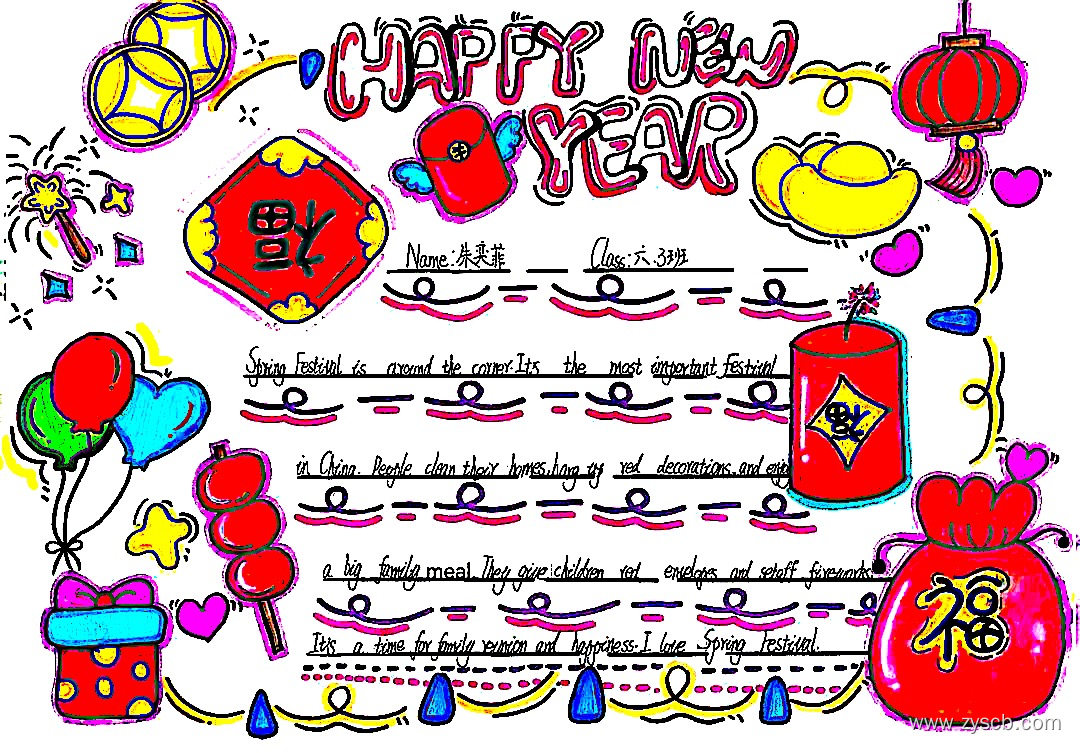 HAPPY NEW
YEAR
福
Name:朱奕菲 Class:六.3班
Spring Festival is around the corner. It's the most important festival
福
in China. People clean their homes, hang up red decorations, and enjoy
a big family meal. They give children red envelopes and set off fireworks.
福
It is a time for family reunion and happiness. I love Spring Festival.
www.zyscb.com